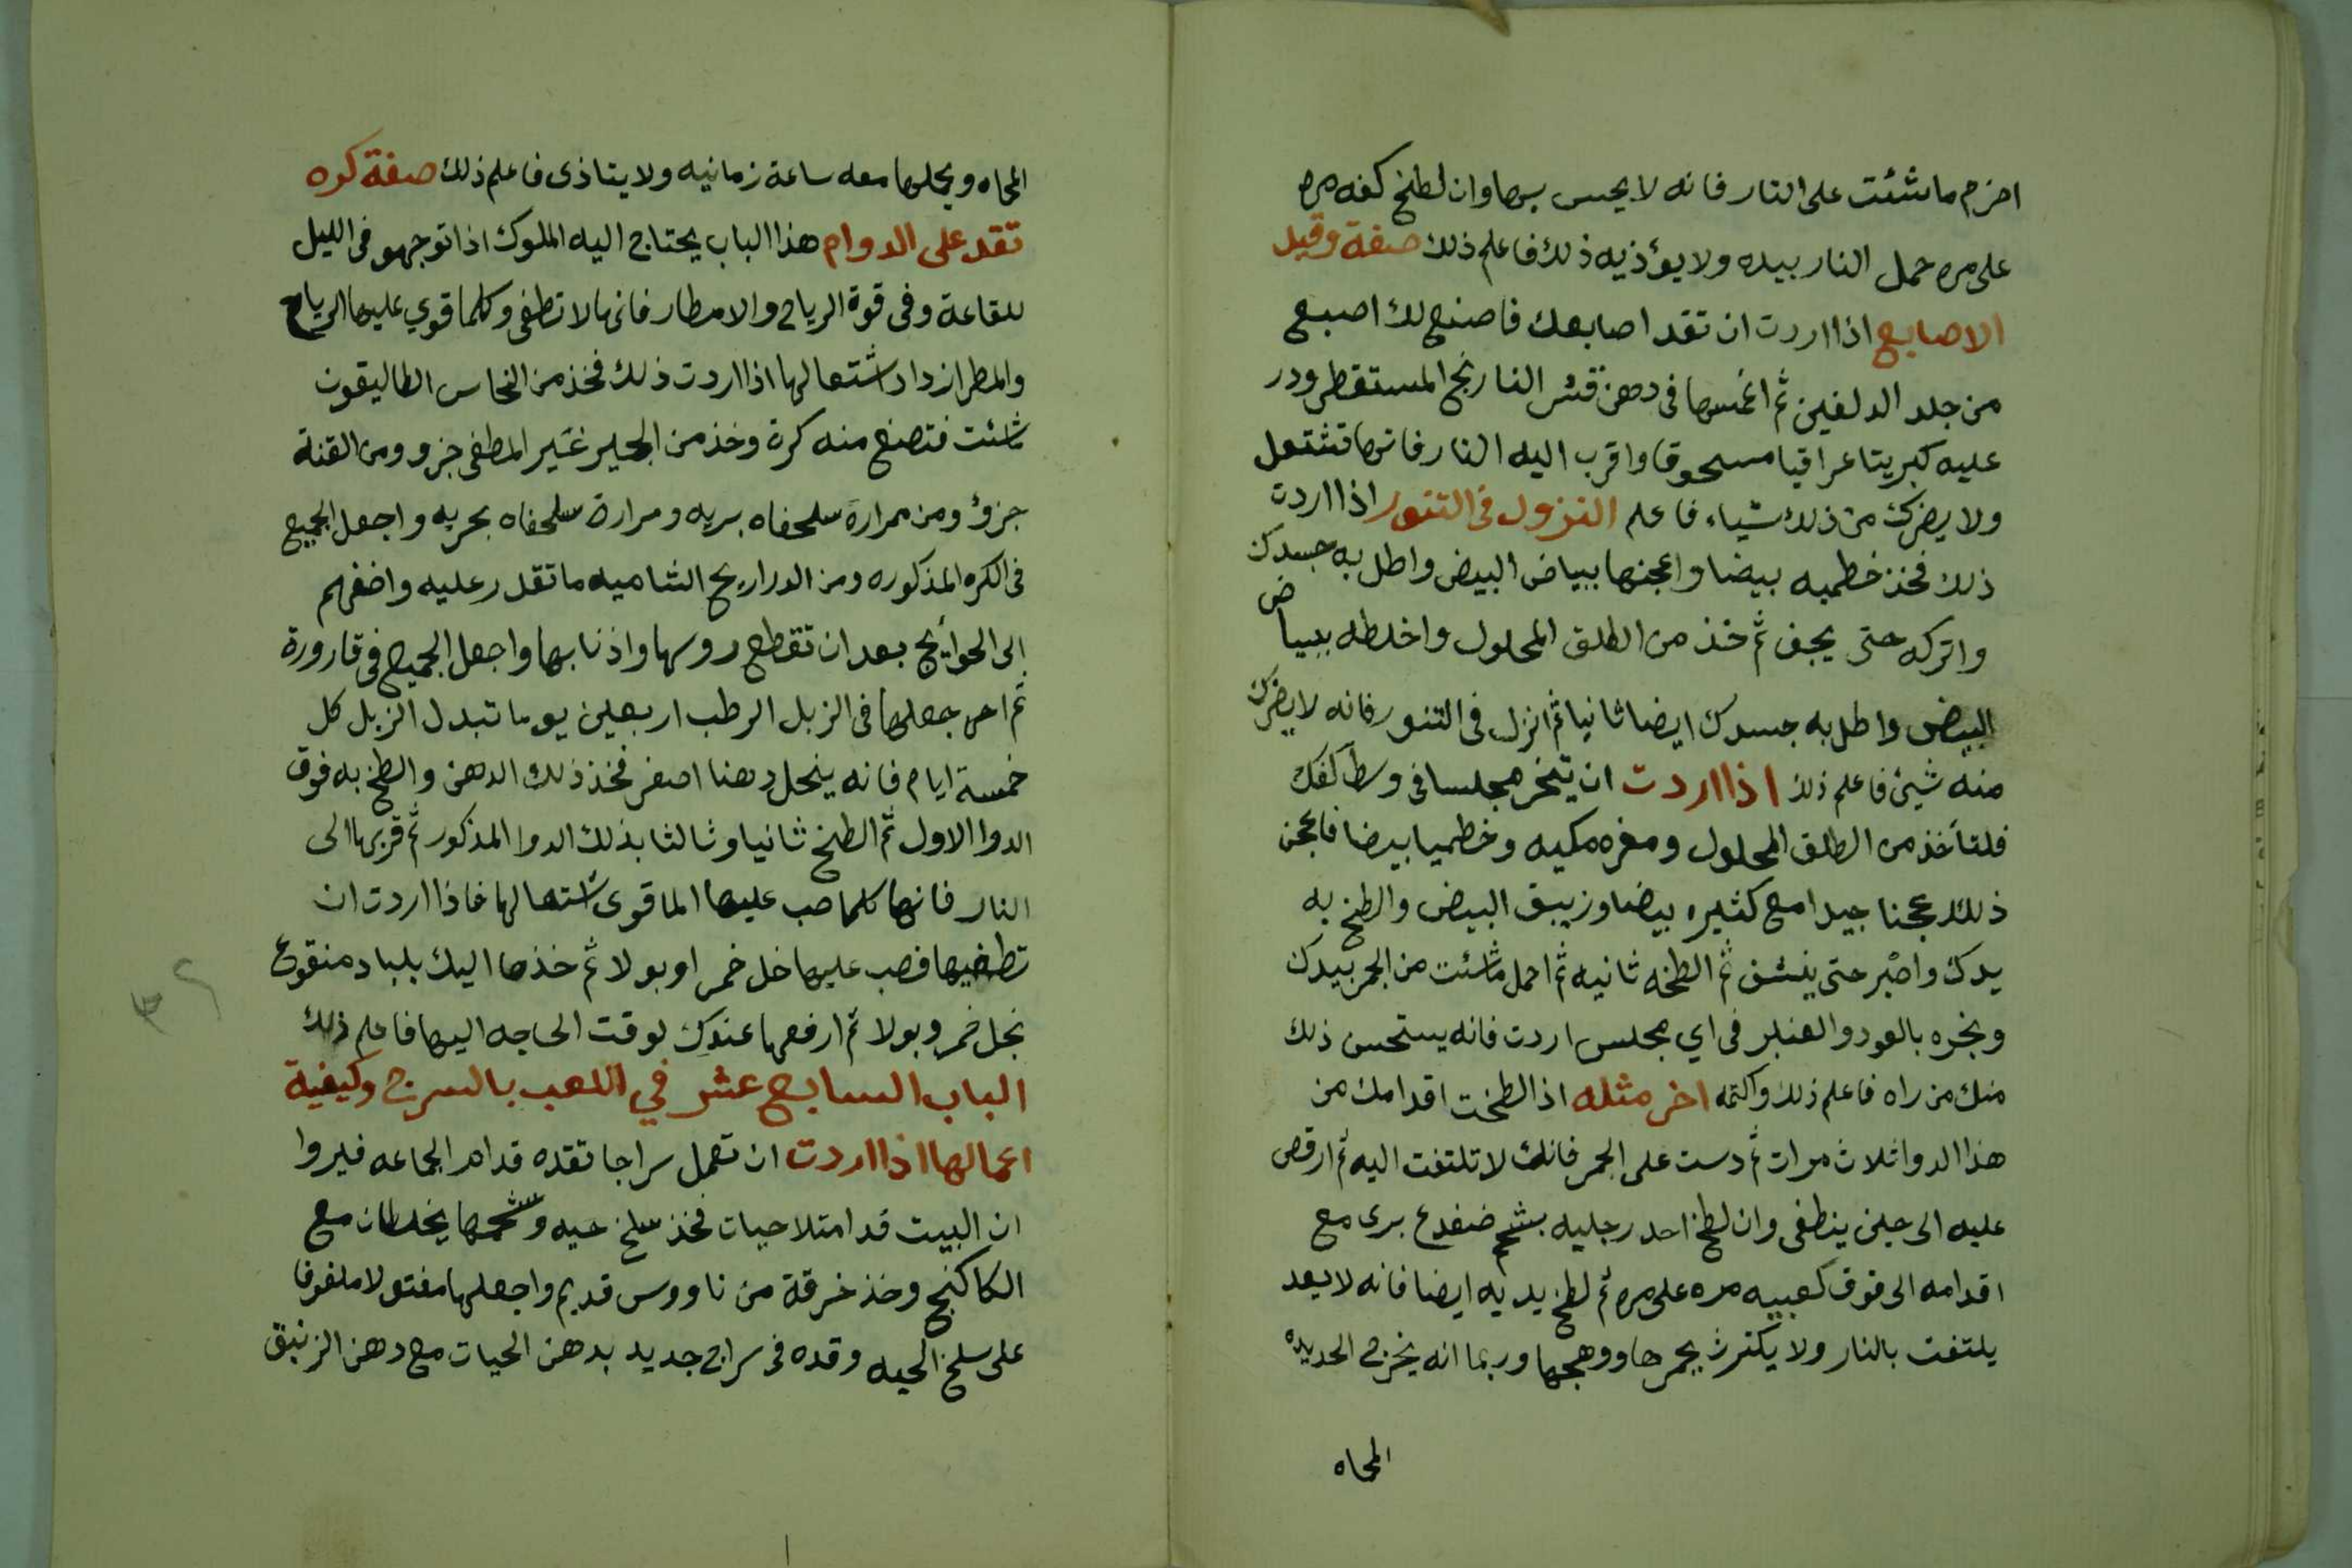 احزم ما شئت على النار فانه لا يحس بها وان لطخ كفه مره
على مره حمل النار بيده ولا يؤذيه ذلك فاعلم ذلك صفة وقيد
الاصابع اذا اردت ان تقد اصابعك فاصنع لك اصبع
من جلد الدلفين ثم اغمسها فى دهن قشر النارنج المستقطر ودر
عليه كبريتا عراقيا مسحوقا واقرب اليه النار فانها تشتعل
ولا يضرك من ذلك شياء فاعلم النزول فى التنور اذا اردت
ذلك فخذ خطميه بيضا واعجنها ببياض البيض واطل به جسدك
واتركه حتى يجف ثم خذ من الطلق المحلول واخلطه ببياض
البيض واطل به جسدك ايضا ثانيا ثم انزل فى التنور فانه لا يضرك
منه شيئ فاعلم ذلك اذا اردت ان تبخر مجلسا فى وسط كفك
فلتأخذ من الطلق المحلول ومغره مكيه وخطميا بيضا فاعجن
ذلك عجنا جيدا مع كثيره بيضا وزيبق البيض والطخ به
يدك واصبر حتى ينشف ثم الطخه ثانيه ثم احمل ما شئت من الجمر بيدك
وبخره بالعود والعنبر فى اي مجلس اردت فانه يستحسن ذلك
منك من راه فاعلم ذلك واكتمه اخر مثله اذا لطخت اقدامك من
هذا الدوا ثلاث مرات ثم دست على الجمر فانك لا تلتفت اليه ثم ارقص
عليه الى حين ينطفى وان لطخ احد رجليه بشحم ضفدع برى مع
اقدامه الى فوق كعبيه مره على مره ثم لطخ يديه ايضا فانه لا يعد
يلتفت بالنار ولا يكترث بجمرها ووهجها وربما انه يخرج الحديده
المحاه
المحاه ويحلها معه ساعة زمانيه ولا يتاذى فاعلم ذلك صفة كره
تقد على الدوام هذا الباب يحتاج اليه الملوك اذا توجهو فى الليل
للقاعة وفى قوة الرياح والامطار فانها لا تطفى وكلما قوي عليها الرياح
والمطر ازداد اشتعالها اذا اردت ذلك فخذ من النحاس الطاليقون
ما شئت فتصنع منه كرة وخذ من الجير غير المطفى جزو ومن القنة
جزؤ ومن مرارة سلحفاه بريه ومرارة سلحفاه بحريه واجعل الجميع
فى الكره المذكوره ومن الدراريح الشاميه ما تقدر عليه واضفهم
الى الحوأيج بعد ان تقطع روسها واذنابها واجعل الجميع فى قارورة
ثم اجعلها فى الزبل الرطب اربعين يوما تبدل الزبل كل
خمسة ايام فانه ينحل دهنا اصفر فخذ ذلك الدهن والطخ به فوق
الدوا الاول ثم الطخ ثانيا وثالثا بذلك الدوا المذكور ثم قربها الى
النار فانها كلما صب عليها الما قوى اشتعالها فاذا اردت ان
تطفيها فصب عليها خل خمر او بولا ثم خذها اليك بلباد منقوع
بخل خمر وبولا ثم ارفعها عندك لوقت الحاجه اليها فاعلم ذلك
الباب السابع عشر في اللعب بالسرج وكيفية
اعمالها اذا اردت ان تعمل سراجا تقده قدام الجماعه فيروا
ان البيت قد امتلا حيات فخذ سلخ حيه وشحمها يخلطان مع
الكاكنج وخذ خرقة من ناووس قديم واجعلها مفتولا ملفوفا
على سلخ الحيه وقده فى سراج جديد بدهن الحيات مع دهن الزنبق